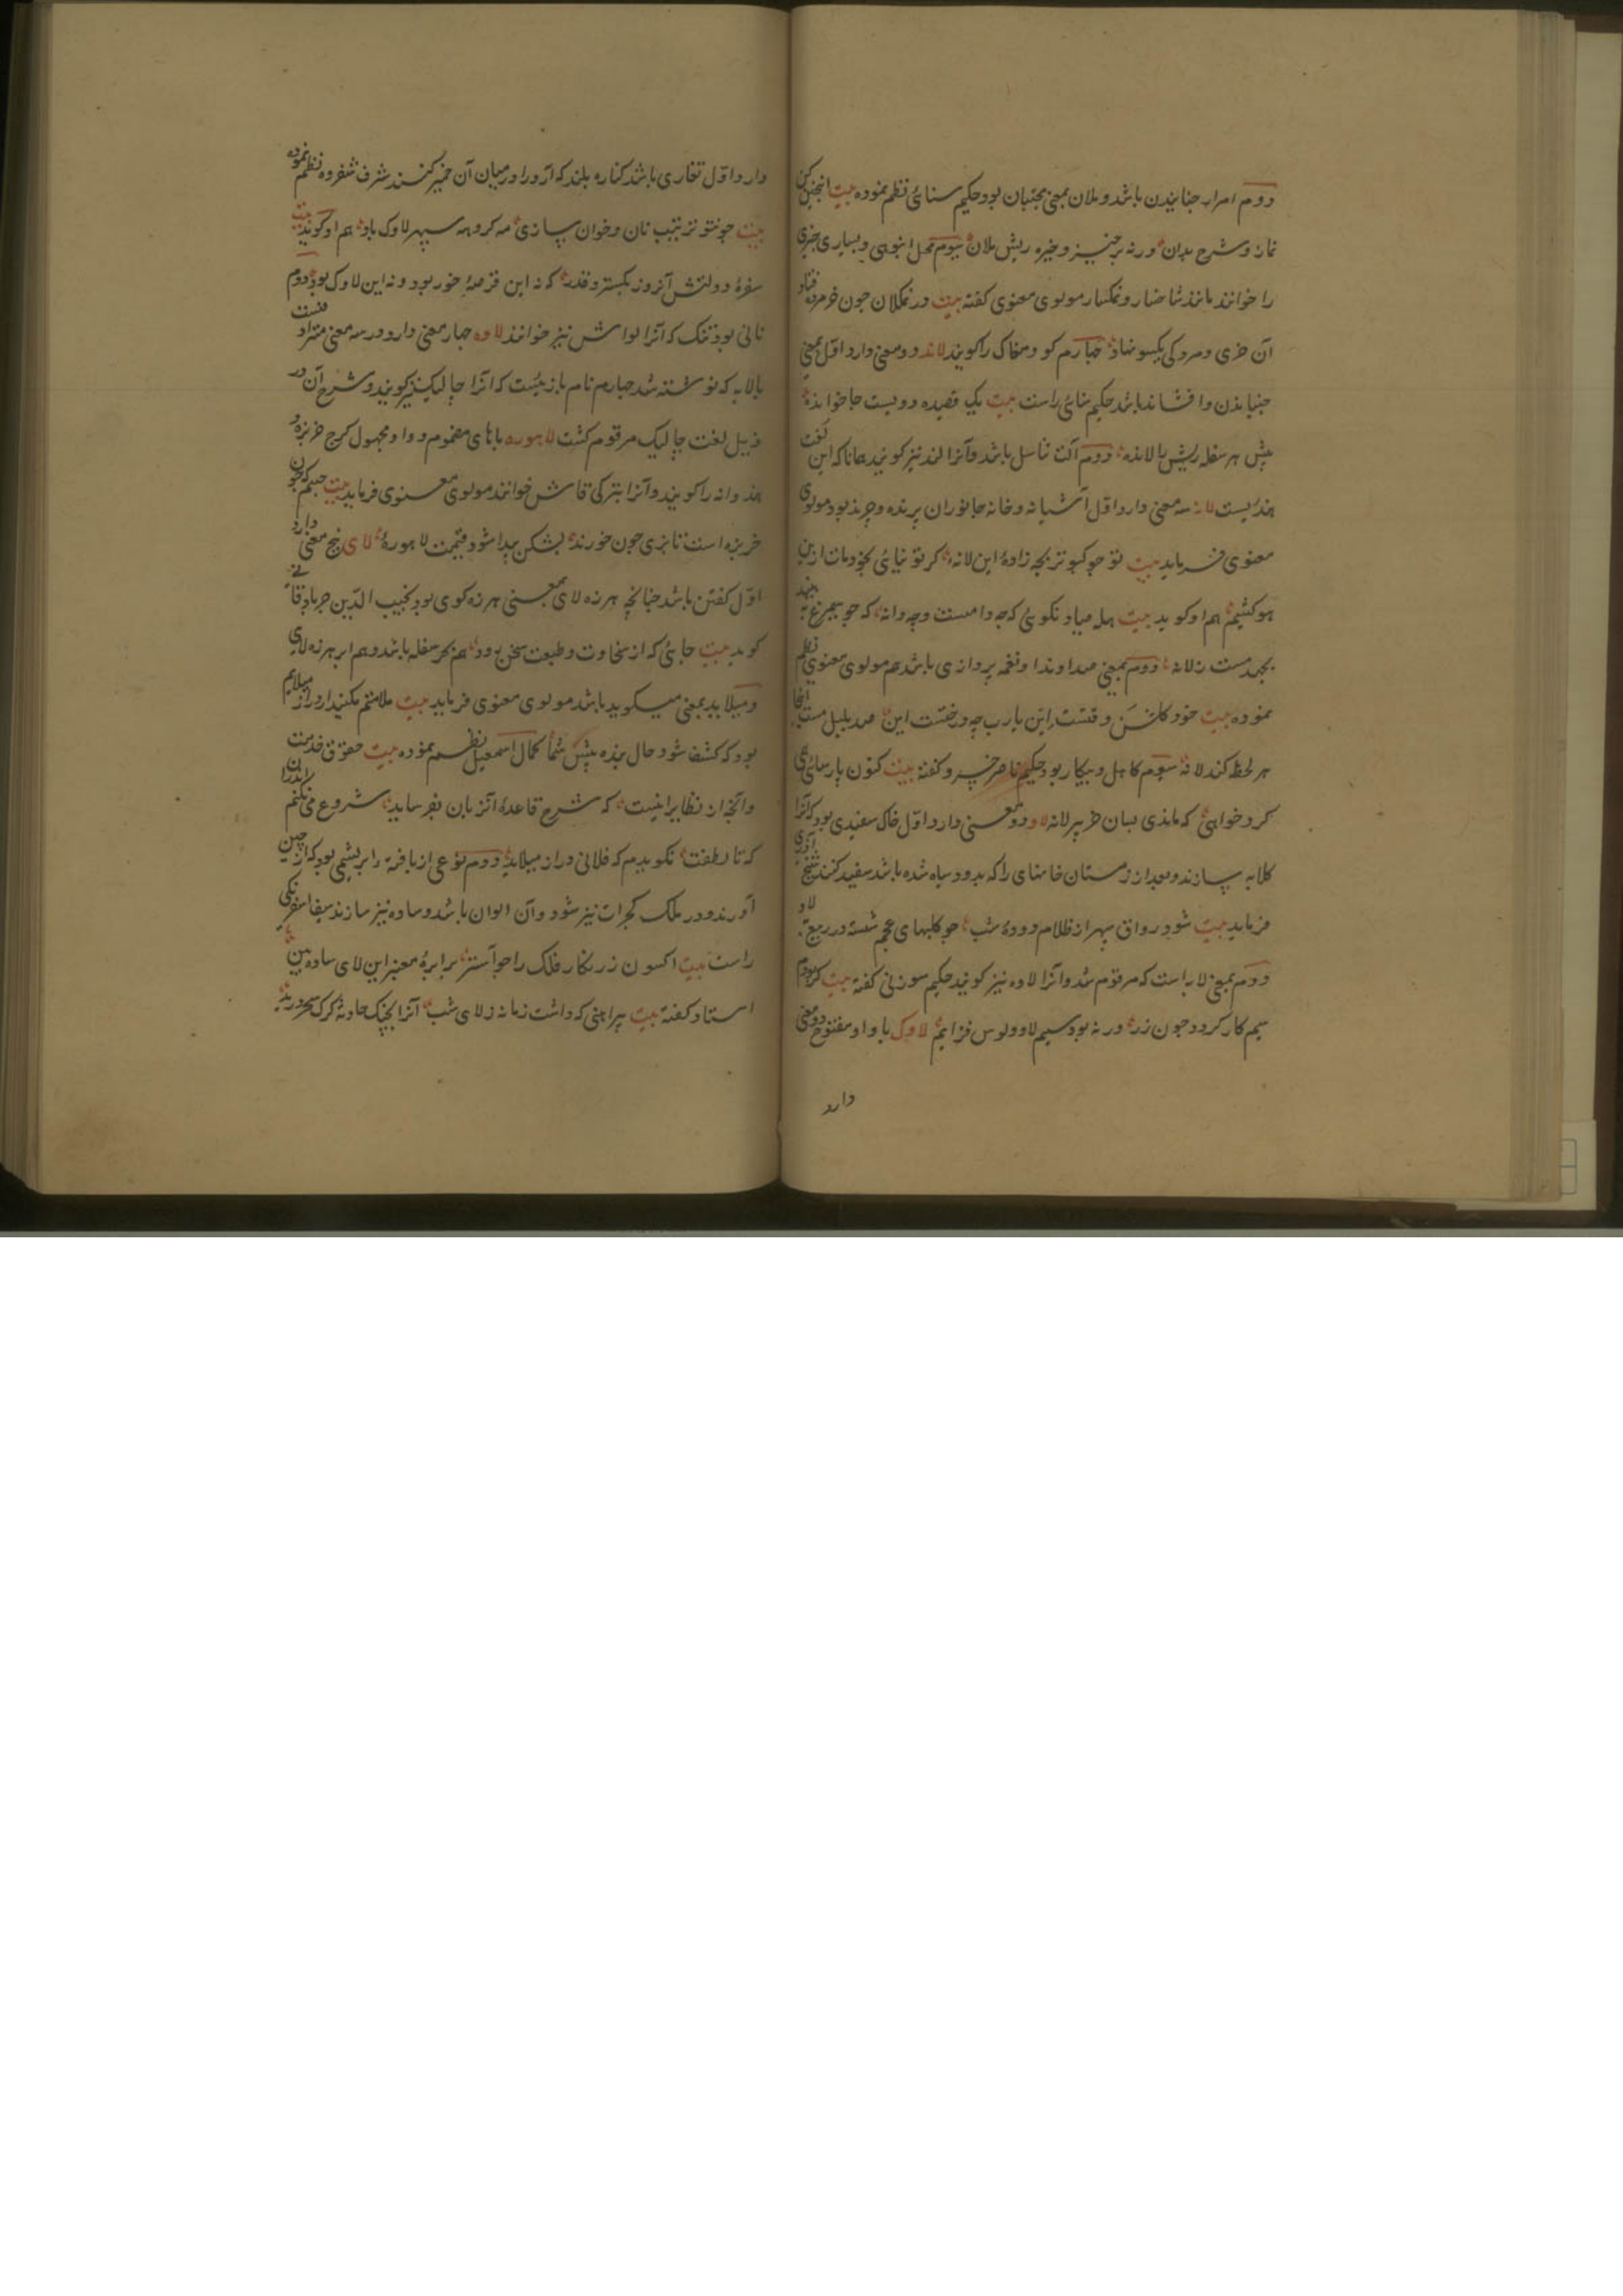 دوم امر از جنبانیدن باشد و ملان بمعنی مجنبان بود حکیم سنائی نظم نموده بیت اینچنین کن
نماز و شرح بدان ورنه برخیز و خیره ریش ملان سیوم محل انبوهی و بسیاری چیزی
را خوانند مانند شاخسار و نمکسار مولوی معنوی گفته بیت در نمکلان چون خر مرده فتاد
آن خری و مردگی یکسو نهاد چهارم گو و مغاک را گویند لاند دو معنی دارد اول بمعنی
جنبانیدن و افشاند باشد حکیم سنائی راست بیت یک قصیده دویست جا خوانده
پیش هر سفله ریش را لانده دوم آلت تناسل باشد و آنرا لند نیز گویند همانا که این لغت
هندیست لانه سه معنی دارد اول آشیانه و خانه جانوران پرنده و چرنده بود مولوی
معنوی فرماید بیت تو چو کبوتر بچه زاده این لانه گر تو نیائی بخود مات ازین
سو کشیم هم او گوید بیت هله صیاد نگوئی که چه دامست و چه دانه که چو سیمرغ ببیند
بجهد مست ز لانه دوم بمعنی صدا و ندا و نغمه پردازی باشد هم مولوی معنوی نظم
نموده بیت خود گلشن وقتست این یارب چه درختست این صد بلبل مست اینجا
هر لحظه کند لانه سیوم کاهل و بیکار بود حکیم ناصر خسرو گفته بیت کنون پارسائی همی
کرد خواهی که ماندی بسان خر پیر لانه لاو دو معنی دارد اول خاک سفیدی بود که آنرا
کلابه سازند و بعد از زمستان خانهای را که بدود سیاه شده باشد سفید کنند شیخ آذری
فرماید بیت شود رواق سپهر از ظلام دوده شب چو کلبهای عجم شسته در ربیع بلاو
دوم بمعنی لابه است که مرقوم شد و آنرا لاوه نیز گویند حکیم سوزنی گفته بیت گر بودم
سیم کار گردد چون زر ورنه بود سیم لاو و لوس فزایم لاوک با واو مفتوح دو معنی
دارد
دارد اول تغاری باشد کناره بلند که آرد را در میان آن خمیر کنند شرف شفروه نظم نموده
بیت چو تو ترتیب نان و خوان سازی مه گرده سپهر لاوک باد هم او گوید بیت
سفره دولتش آنروز بگسترد قدر که نه این قرصه خور بود و نه این لاوک بود دوم
نانی بود تنک که آنرا لواش نیز خوانند لاوه چهار معنی دارد در سه معنی مترادفست
بالابه که نوشته شد چهارم نام بازیست که آنرا چالیک نیز گویند و شرح آن در
ذیل لغت چالیک مرقوم گشت لاهوره با های مضموم و واو مجهول کرج خربزه و
هندوانه را گویند و آنرا بترکی قاش خوانند مولوی معنوی فرماید بیت جسم که چون
خربزه است تا نبری چون خورند بشکن پیدا شود قیمت لاهوره لای پنج معنی دارد
اول گفتن باشد چنانچه هرزه لای بمعنی هرزه گوی بود نجیب الدین جرباذقانی
گوید بیت جائی که از سخاوت و طبعت سخن رود هم بحر سفله باشد و هم ابر هرزه لای
و میلاید بمعنی میگوید باشد مولوی معنوی فرماید بیت ملامتم مکنید ار دراز میلایم
بود که کشف شود حال بنده پیش شما کمال اسمعیل نظم نموده بیت حقوق خدمت
و آنچ از نظایر اینست که شرح قاعده آنزبان بفرساید شروع می نکنم اندران
که تا لطفت نگویدم که فلانی دراز میلاید دوم نوعی از بافته ابریشمی بود که از چین
آورند و در ملک گجرات نیز شود و آن الوان باشد و ساده نیز سازند سیفا سفرنگی
راست بیت اکسون زرنگار فلک را چو آستر برابره معنبر این لای ساده بین
استاد گفته بیت پیراهنی که داشت زمانه ز لای شب آنرا بچنگ حادثه گرگ سحر درید